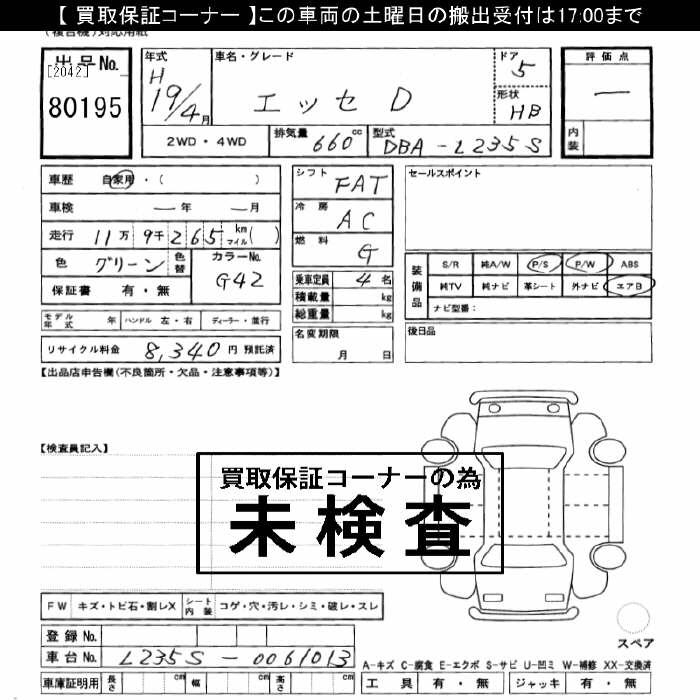 【 買取保証コーナー 】この車両の土曜日の搬出受付は17:00まで
(複合機)対応用紙
出品No.
[2042]
80195
年式
H
19/4月
車名・グレード
エッセ D
ドア
5
形状
HB
2WD・4WD
排気量 660cc
型式 DBA-L235S
評価点
―
内装
車歴 自家用・( )
車検 ―年 ―月
走行 11万 9千 265 km マイル( )
色 グリーン 色替
カラーNo. G42
保証書 有・無
モデル年式 年 ハンドル 左・右 ディーラー・並行
リサイクル料金 8,340 円 預託済
シフト FAT
冷房 AC
燃料 G
乗車定員 4 名
積載量 kg
総重量 kg
名変期限
月 日
セールスポイント
装備品
S/R 純A/W P/S P/W ABS
純TV 純ナビ 革シート 外ナビ エアB
ナビ型番:
後日品
【出品店申告欄(不良箇所・欠品・注意事項等)】
【検査員記入】
買取保証コーナーの為
未検査
FW キズ・トビ石・割レX
シート内装 コゲ・穴・汚レ・シミ・破レ・スレ
登録No.
車台No. L235S-0061013
車庫証明用 長さ cm 幅 cm 高さ cm
スペア
A-キズ C-腐食 E-エクボ S-サビ U-凹ミ W-補修 XX-交換済
工具 有・無 ジャッキ 有・無